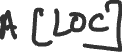 A [LOC]